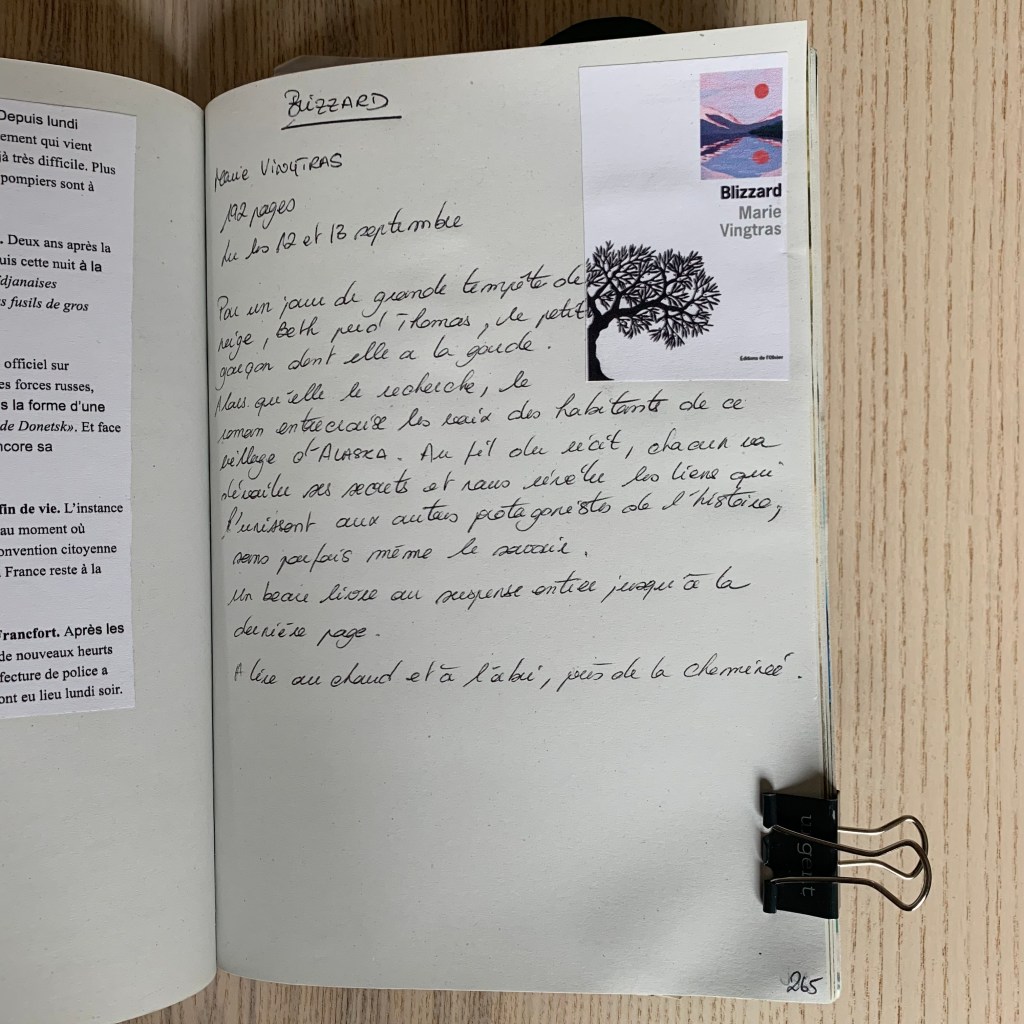 Depuis lundi
ement qui vient
jà très difficile. Plus
pompiers sont à
. Deux ans après la
uis cette nuit à la
djanaises
s fusils de gros
officiel sur
es forces russes,
s la forme d'une
de Donetsk». Et face
ncore sa
fin de vie. L'instance
au moment où
onvention citoyenne
France reste à la
Francfort. Après les
de nouveaux heurts
fecture de police a
ont eu lieu lundi soir.
BLIZZARD
Marie VINGTRAS
192 pages
Lu les 12 et 13 septembre
Par un jour de grande tempête de
neige, Beth perd Thomas, le petit
garçon dont elle a la garde.
Alors qu'elle le recherche, le
roman entrecroise les voix des habitants de ce
village d'ALASKA. Au fil du récit, chacun va
dévoiler ses secrets et nous révéler les liens qui
l'unissent aux autres protagonistes de l'histoire,
sans parfois même le savoir.
Un beau livre au suspense entier jusqu'à la
dernière page.
A lire au chaud et à l'abri, près de la cheminée.
Blizzard
Marie
Vingtras
Éditions de l'Olivier
urgent
265